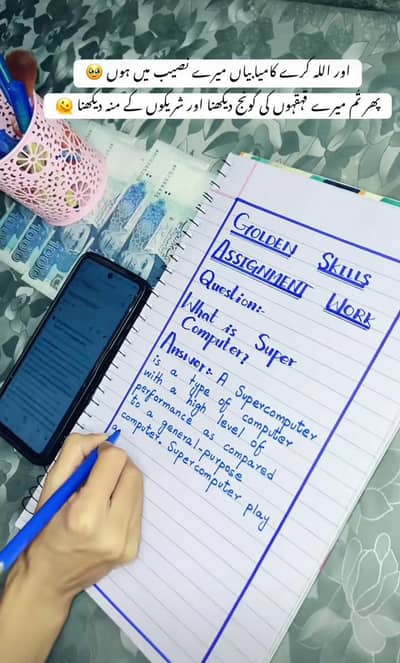 اور اللہ کرے کامیابیاں میرے نصیب میں ہوں 🥹
پھر تم میرے قہقہوں کی گونج دیکھنا اور شریکوں کے منہ دیکھنا 🫠
GOLDEN SKILLS
ASSIGNMENT WORK
Question:-
What is Super
Computer?
Answer:- A Supercomputer
is a type of computer
with a high level of
performance as compared
to a general-purpose
computer. Supercomputer play
a
1000